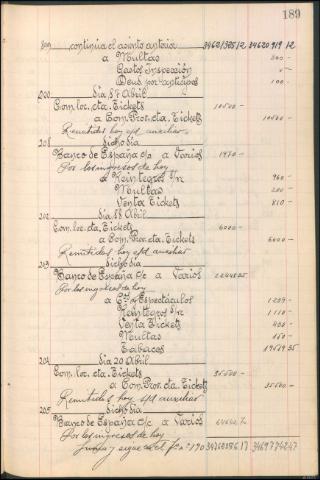 189
continua el asiento anterior 34621325 12 34620919 12
a Multas 300 -
Gastos Inspección
Deud. por anticipos 100 -
200 dia 17 Abril
Com. loc. cta. Tickets 10500 -
a Com. Pror. cta. Tickets 10500 -
Remitidas hoy s/d auxiliar
201 dicho dia
Banco de España c/c a Varios 1970 -
Por los ingresos de hoy
a Reintegros s/n 960 -
Multas 200 -
Venta Tickets 810 -
202 dia 18 Abril
Com. loc. cta. Tickets 6000 -
a Com. Pror. cta. Tickets 6000 -
Remitidas hoy s/d auxiliar
203 dicho dia
Banco de España c/c a Varios
Por los ingresos de hoy
a Espectáculos
Reintegros s/n 1110 -
Venta Tickets 400 -
Multas
Tabacos 19659 35
204 dia 20 Abril
Com. loc. cta. Tickets 35500 -
a Com. Pror. cta. Tickets 35500 -
Remitidas hoy s/d auxiliar
205 dicho dia
Banco de España c/c a Varios
Por los ingresos de hoy
Suma y sigue al fº nº 190